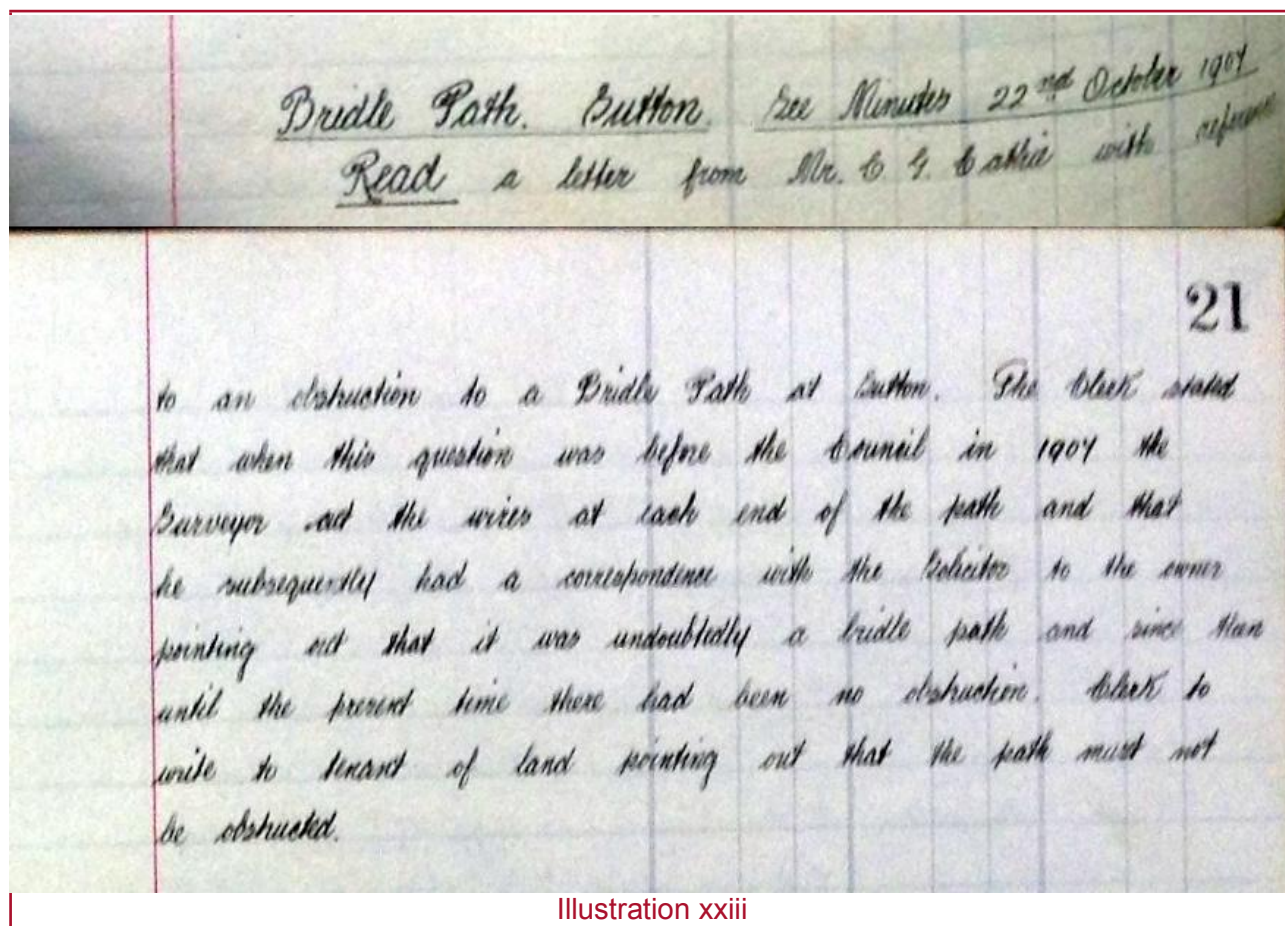 Bridle Path. Sutton. See Minutes 22nd October 1907
Read a letter from Mr. C. G. Cathie with reference
21
to an obstruction to a Bridle Path at Sutton. The Clerk stated
that when this question was before the Council in 1907 the
Surveyor cut the wires at each end of the path and that
he subsequently had a correspondence with the Solicitor to the owner
pointing out that it was undoubtedly a bridle path and since then
until the present time there had been no obstruction. Clerk to
write to tenant of land pointing out that the path must not
be obstructed.
Illustration xxiii